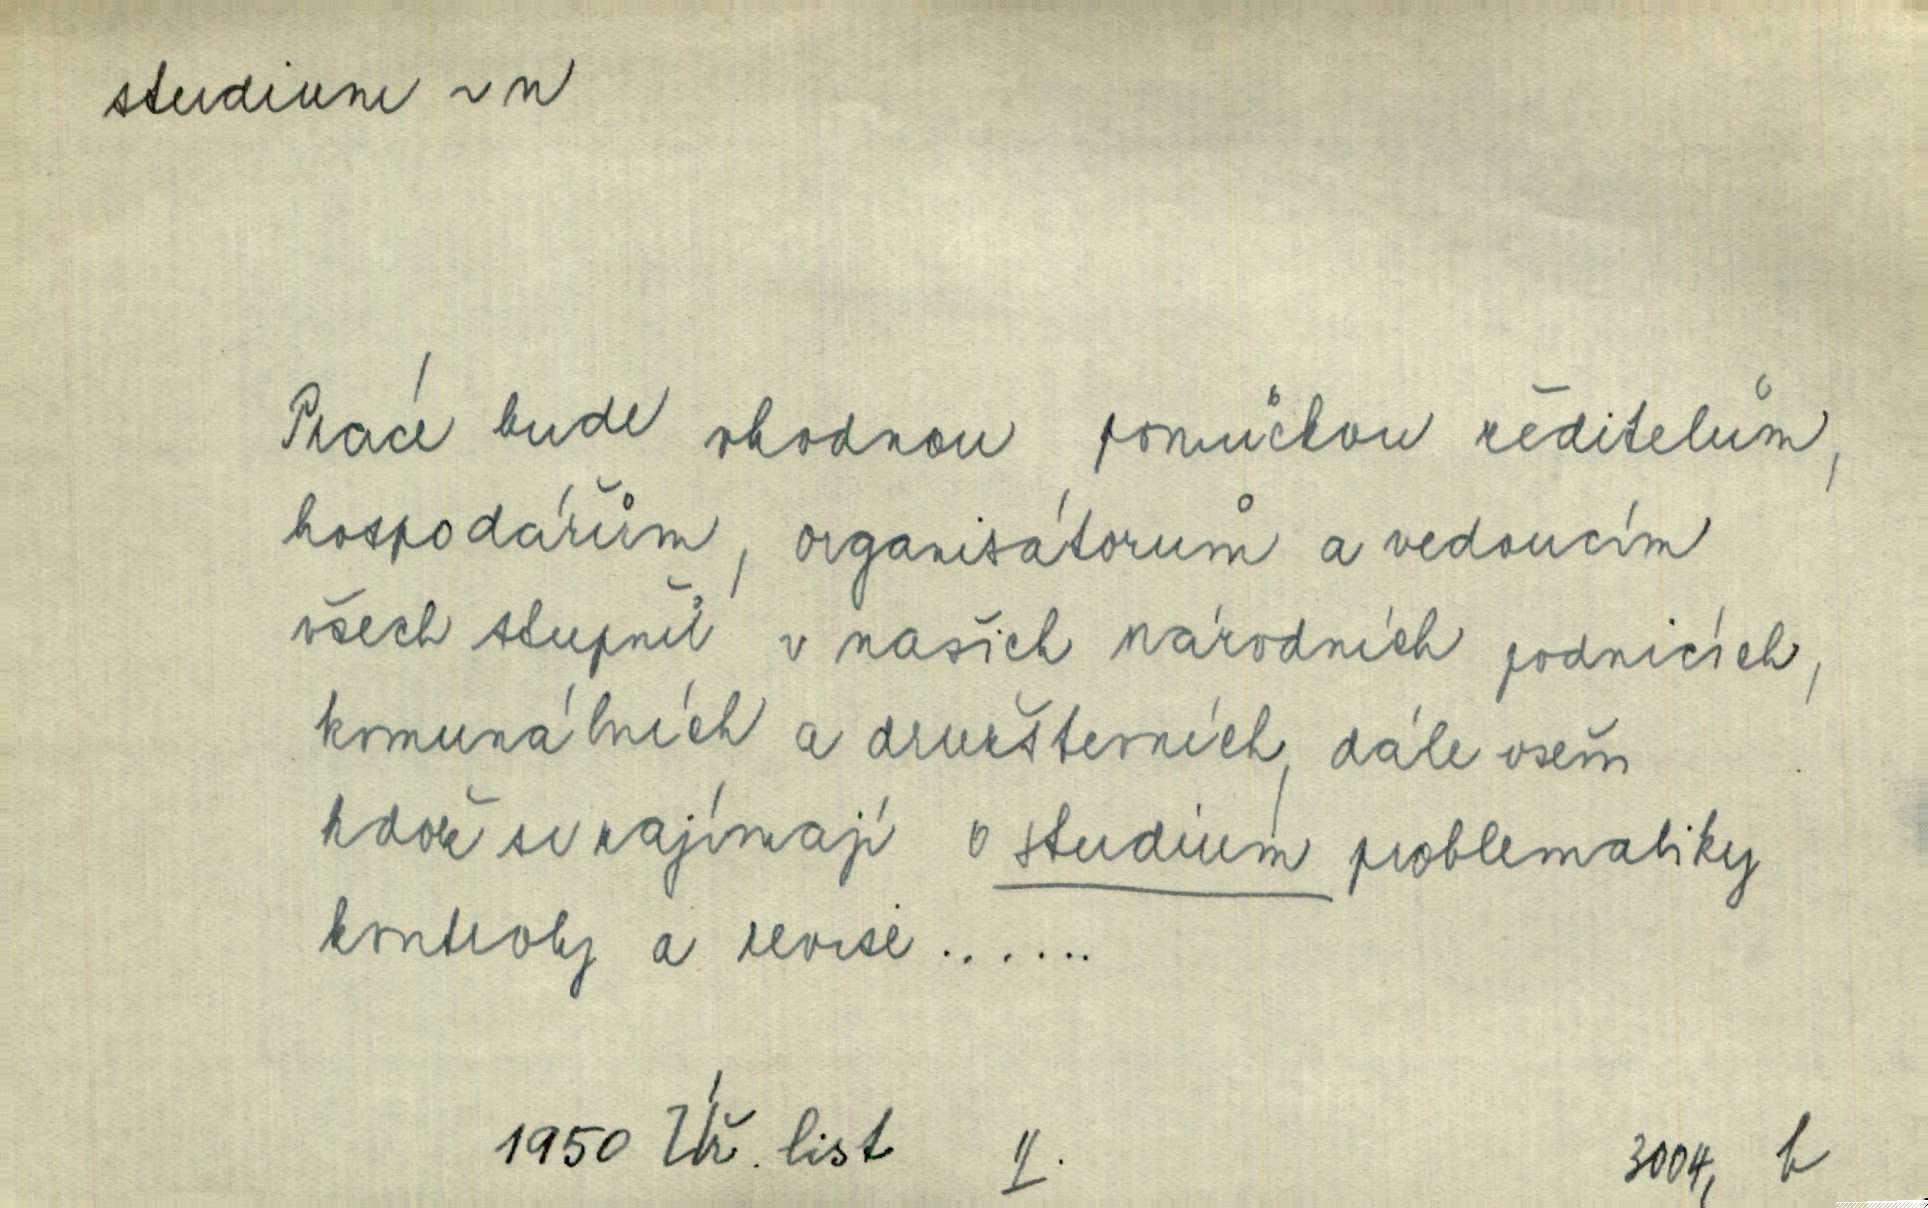 studium ~ n
Práce bude vhodnou pomůckou ředitelům,
hospodářům, organisátorům a vedoucím
všech stupňů v našich národních podnicích,
komunálních a družstevních, dále všem
kdož se zajímají o studium problematiky
kontroly a revise ......
1950 Úř. list II.
3004, b